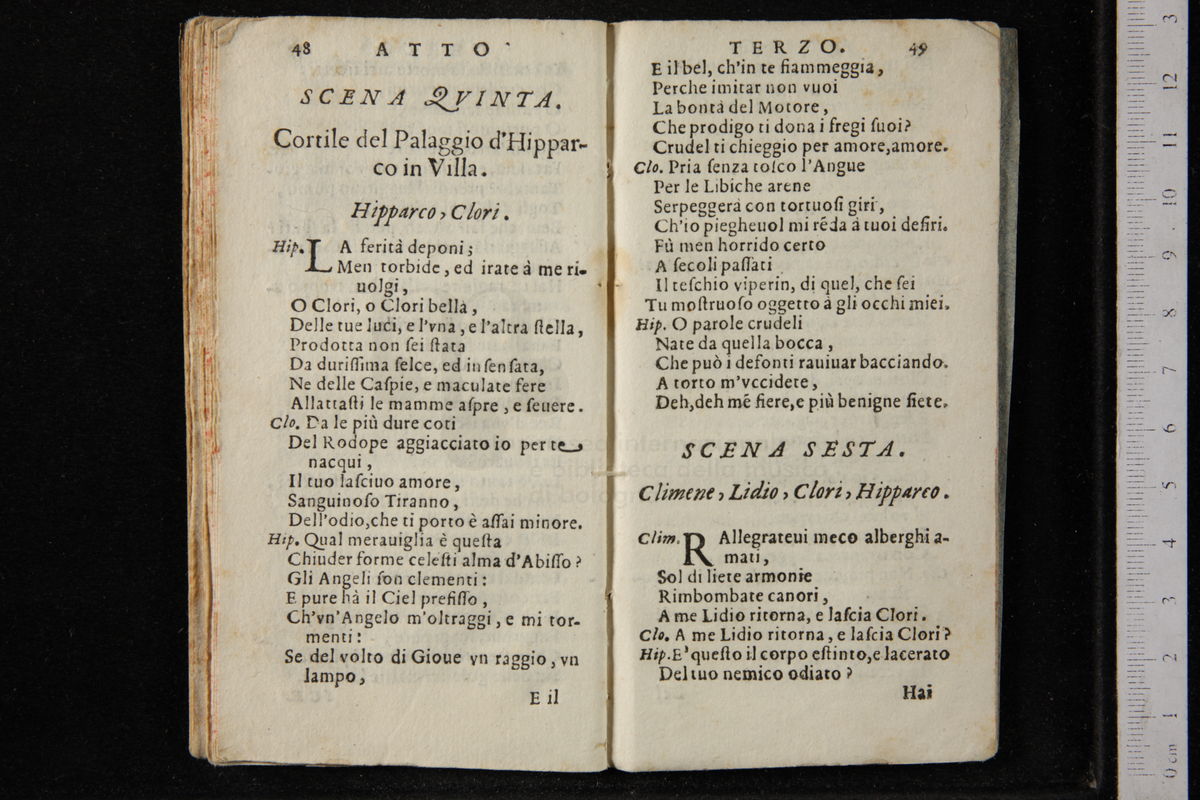 48 ATTO
SCENA QVINTA.
Cortile del Palaggio d'Hippar-
co in Villa.
Hipparco, Clori.
Hip. LA ferità deponi;
Men torbide, ed irate à me ri-
uolgi,
O Clori, o Clori bella,
Delle tue luci, e l'vna, e l'altra ſtella,
Prodotta non ſei ſtata
Da duriſſima ſelce, ed inſenſata,
Ne delle Caſpie, e maculate fere
Allattaſti le mamme aſpre, e ſeuere.
Clo. Da le più dure coti
Del Rodope aggiacciato io per te
nacqui,
Il tuo laſciuo amore,
Sanguinoſo Tiranno,
Dell'odio, che ti porto è aſſai minore.
Hip. Qual merauiglia è queſta
Chiuder forme celeſti alma d'Abiſſo?
Gli Angeli ſon clementi:
E pure hà il Ciel prefiſſo,
Ch'vn'Angelo m'oltraggi, e mi tor-
menti:
Se del volto di Gioue vn raggio, vn
lampo,
E il
TERZO. 49
E il bel, ch'in te fiammeggia,
Perche imitar non vuoi
La bontà del Motore,
Che prodigo ti dona i fregi ſuoi?
Crudel ti chieggio per amore, amore.
Clo. Pria ſenza toſco l'Angue
Per le Libiche arene
Serpeggerà con tortuoſi giri,
Ch'io pieghеuol mi rẽda à tuoi deſiri.
Fù men horrido certo
A ſecoli paſſati
Il teſchio viperin, di quel, che ſei
Tu moſtruoſo oggetto à gli occhi miei.
Hip. O parole crudeli
Nate da quella bocca,
Che può i defonti rauiuar bacciando.
A torto m'vccidete,
Deh, deh mẽ fiere, e più benigne ſiete.
SCENA SESTA.
Climene, Lidio, Clori, Hipparco.
Clim. RAllegrateui meco alberghi a-
mati,
Sol di liete armonie
Rimbombate canori,
A me Lidio ritorna, e laſcia Clori.
Clo. A me Lidio ritorna, e laſcia Clori?
Hip. E' queſto il corpo eſtinto, e lacerato
Del tuo nemico odiato?
Hai
0 cm 1 2 3 4 5 6 7 8 9 10 11 12 13